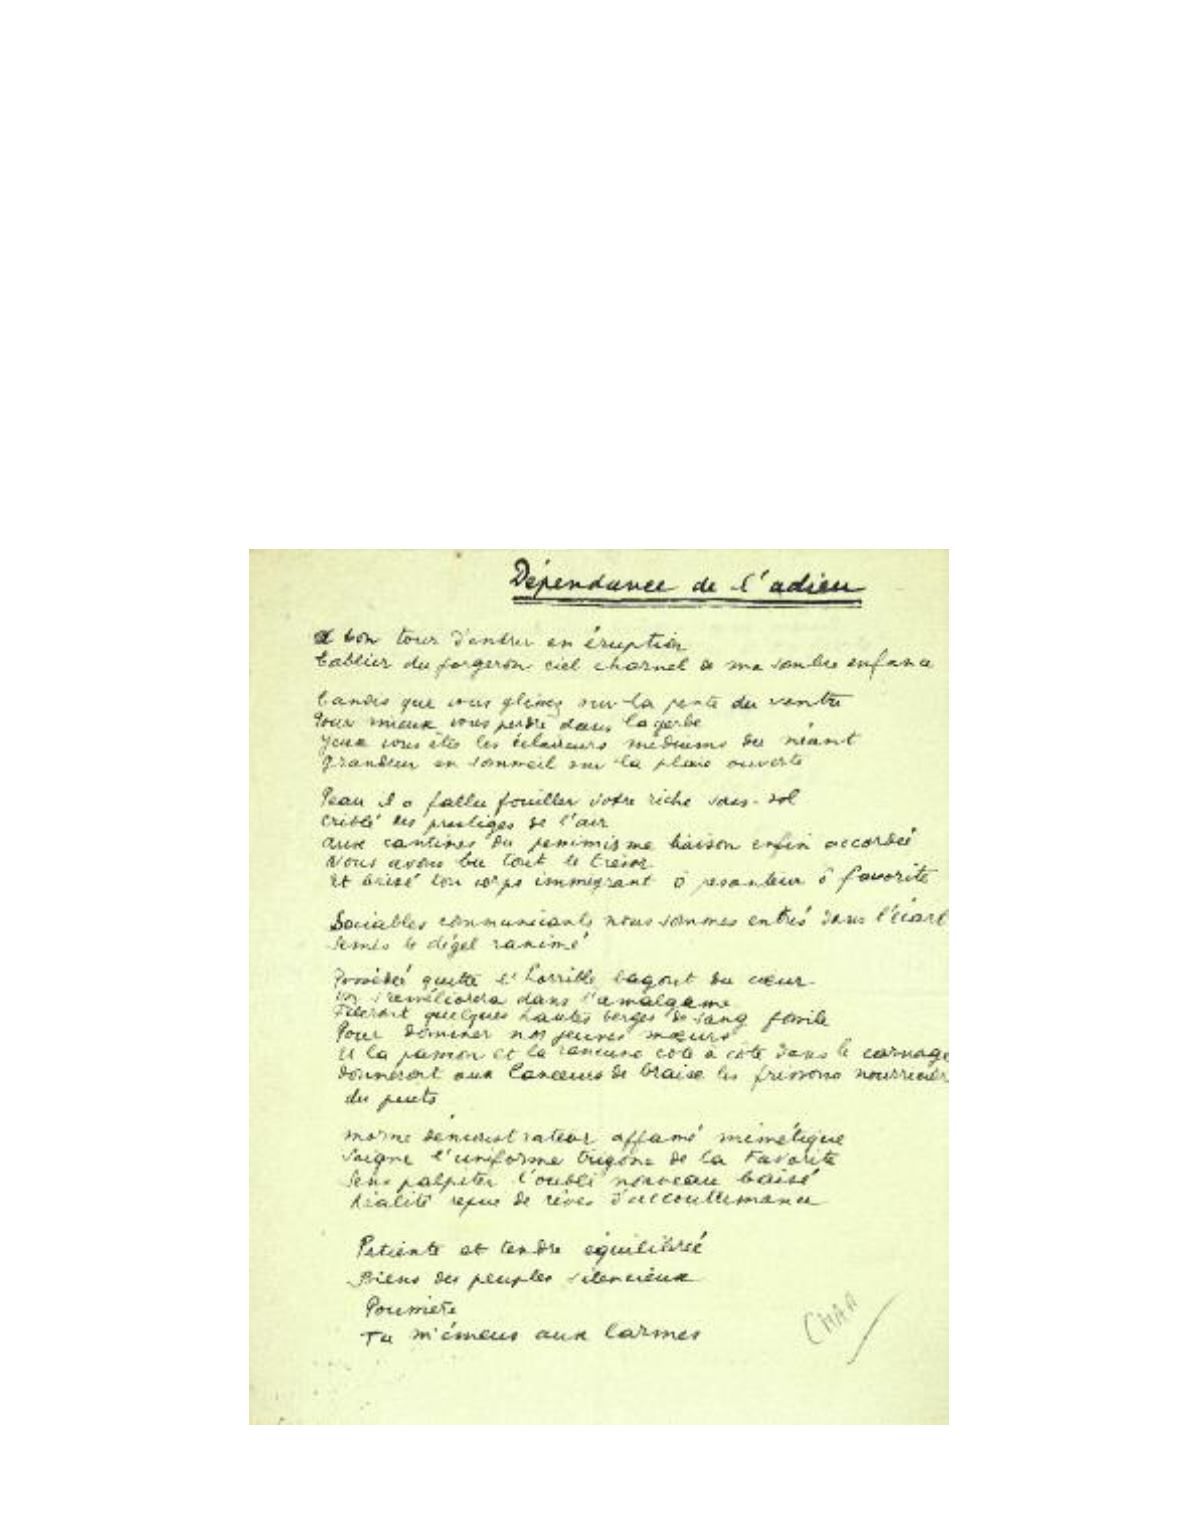 Dépendance de l'adieu
bon tour d'entrer en éruption
Tablier du forgeron ciel charnel de ma sombre enfance
Tandis que vous glissez sur la pente du ventre
Pour mieux vous perdre dans la gerbe
Yeux vous êtes les éclaireurs médiums du néant
Grandeur en sommeil sur la plaie ouverte
Peau il a fallu fouiller votre riche sous-sol
Criblé des prestiges de l'air
Aux cantines du pessimisme liaison enfin accordée
Nous avons bu tout le trésor
Et brisé ton corps immigrant ô pesanteur ô favorite
Sociables communicants nous sommes entrés dans l'écart
Semés le dégel ranimé
quitte l'horrible bagout du cœur
s'améliorera dans l'amalgame
quelques hautes berges de sang fossile
Pour dominer nos jeunes mœurs
Et la passion et la rancune côte à côte dans le carnage
Donneront aux lanceurs de braise les frissons nourriciers
des puits
morne démonstrateur affamé mimétique
Soigne l'uniforme trigone de la Favorite
Sens palpiter l'oubli nouveau baisé
Réalité repue de rêves d'accoutumance
Patiente et tendre équilibrée
Biens des peuples silencieux
Poussière
Tu m'émeus aux larmes
CHAR